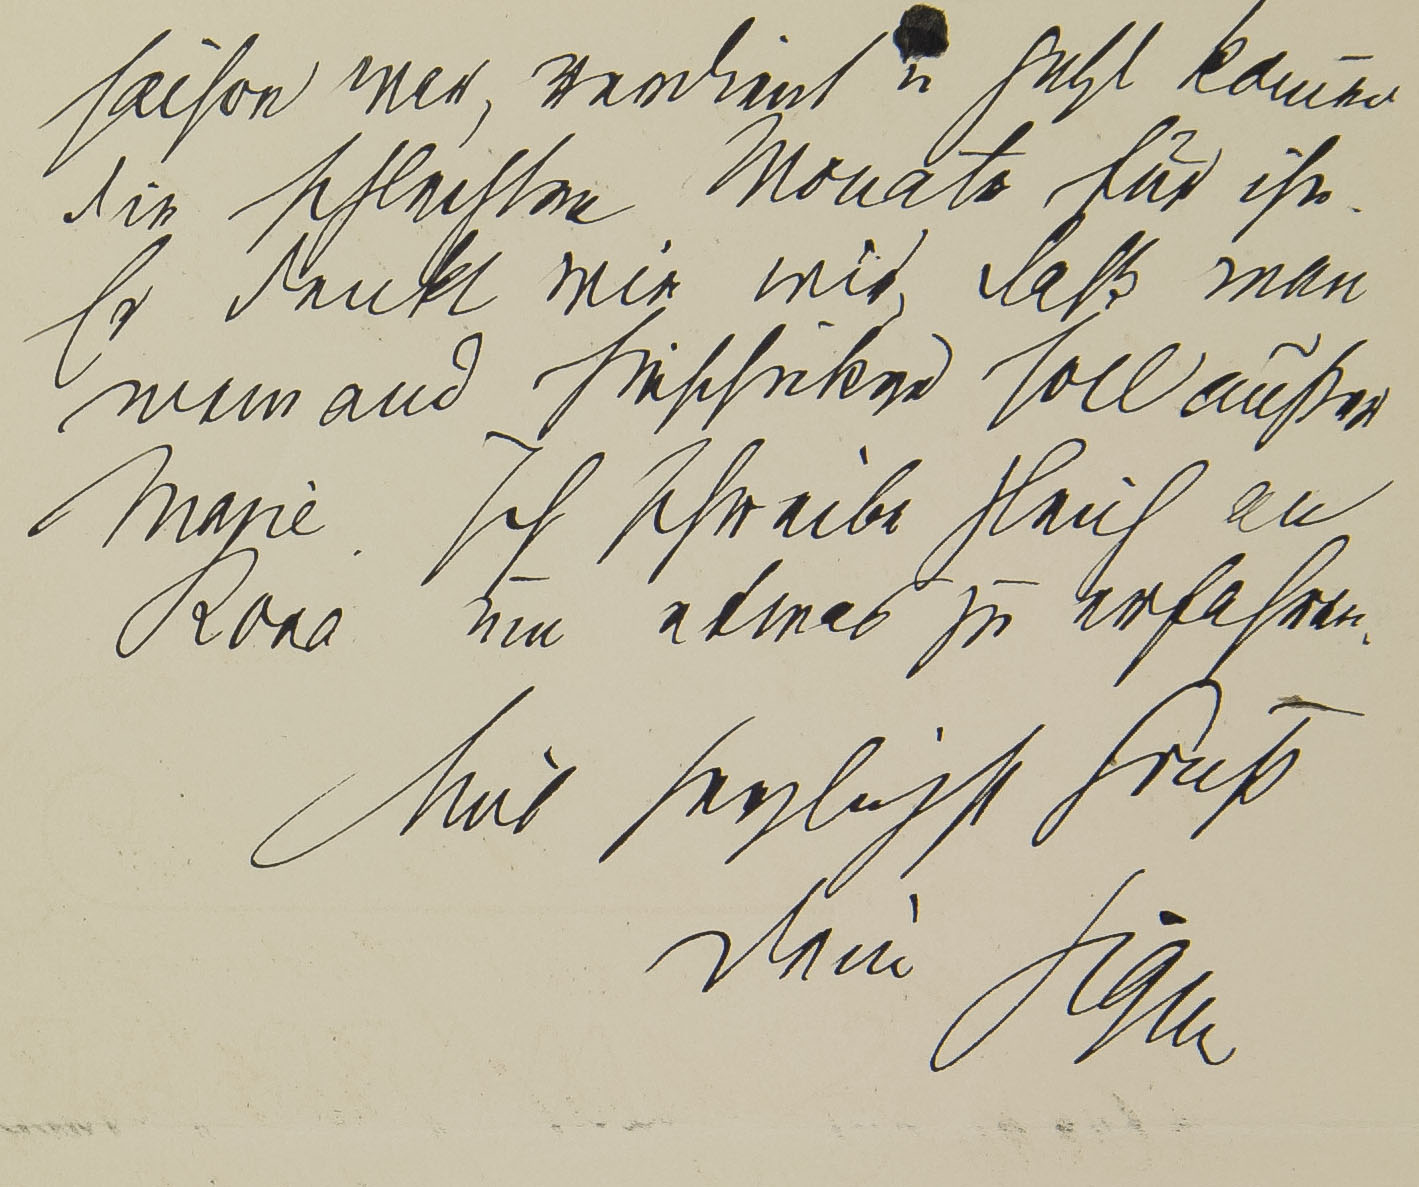 saison war, verdient u jetzt komen
die schlechten Monate für ihn.
Er denkt wie wir, daß man
niemand hinschicken soll außer
Marie. Ich schreibe gleich an
Rosa um etwas zu erfahren.
Mit herzlichst Gruß
dein Sigm